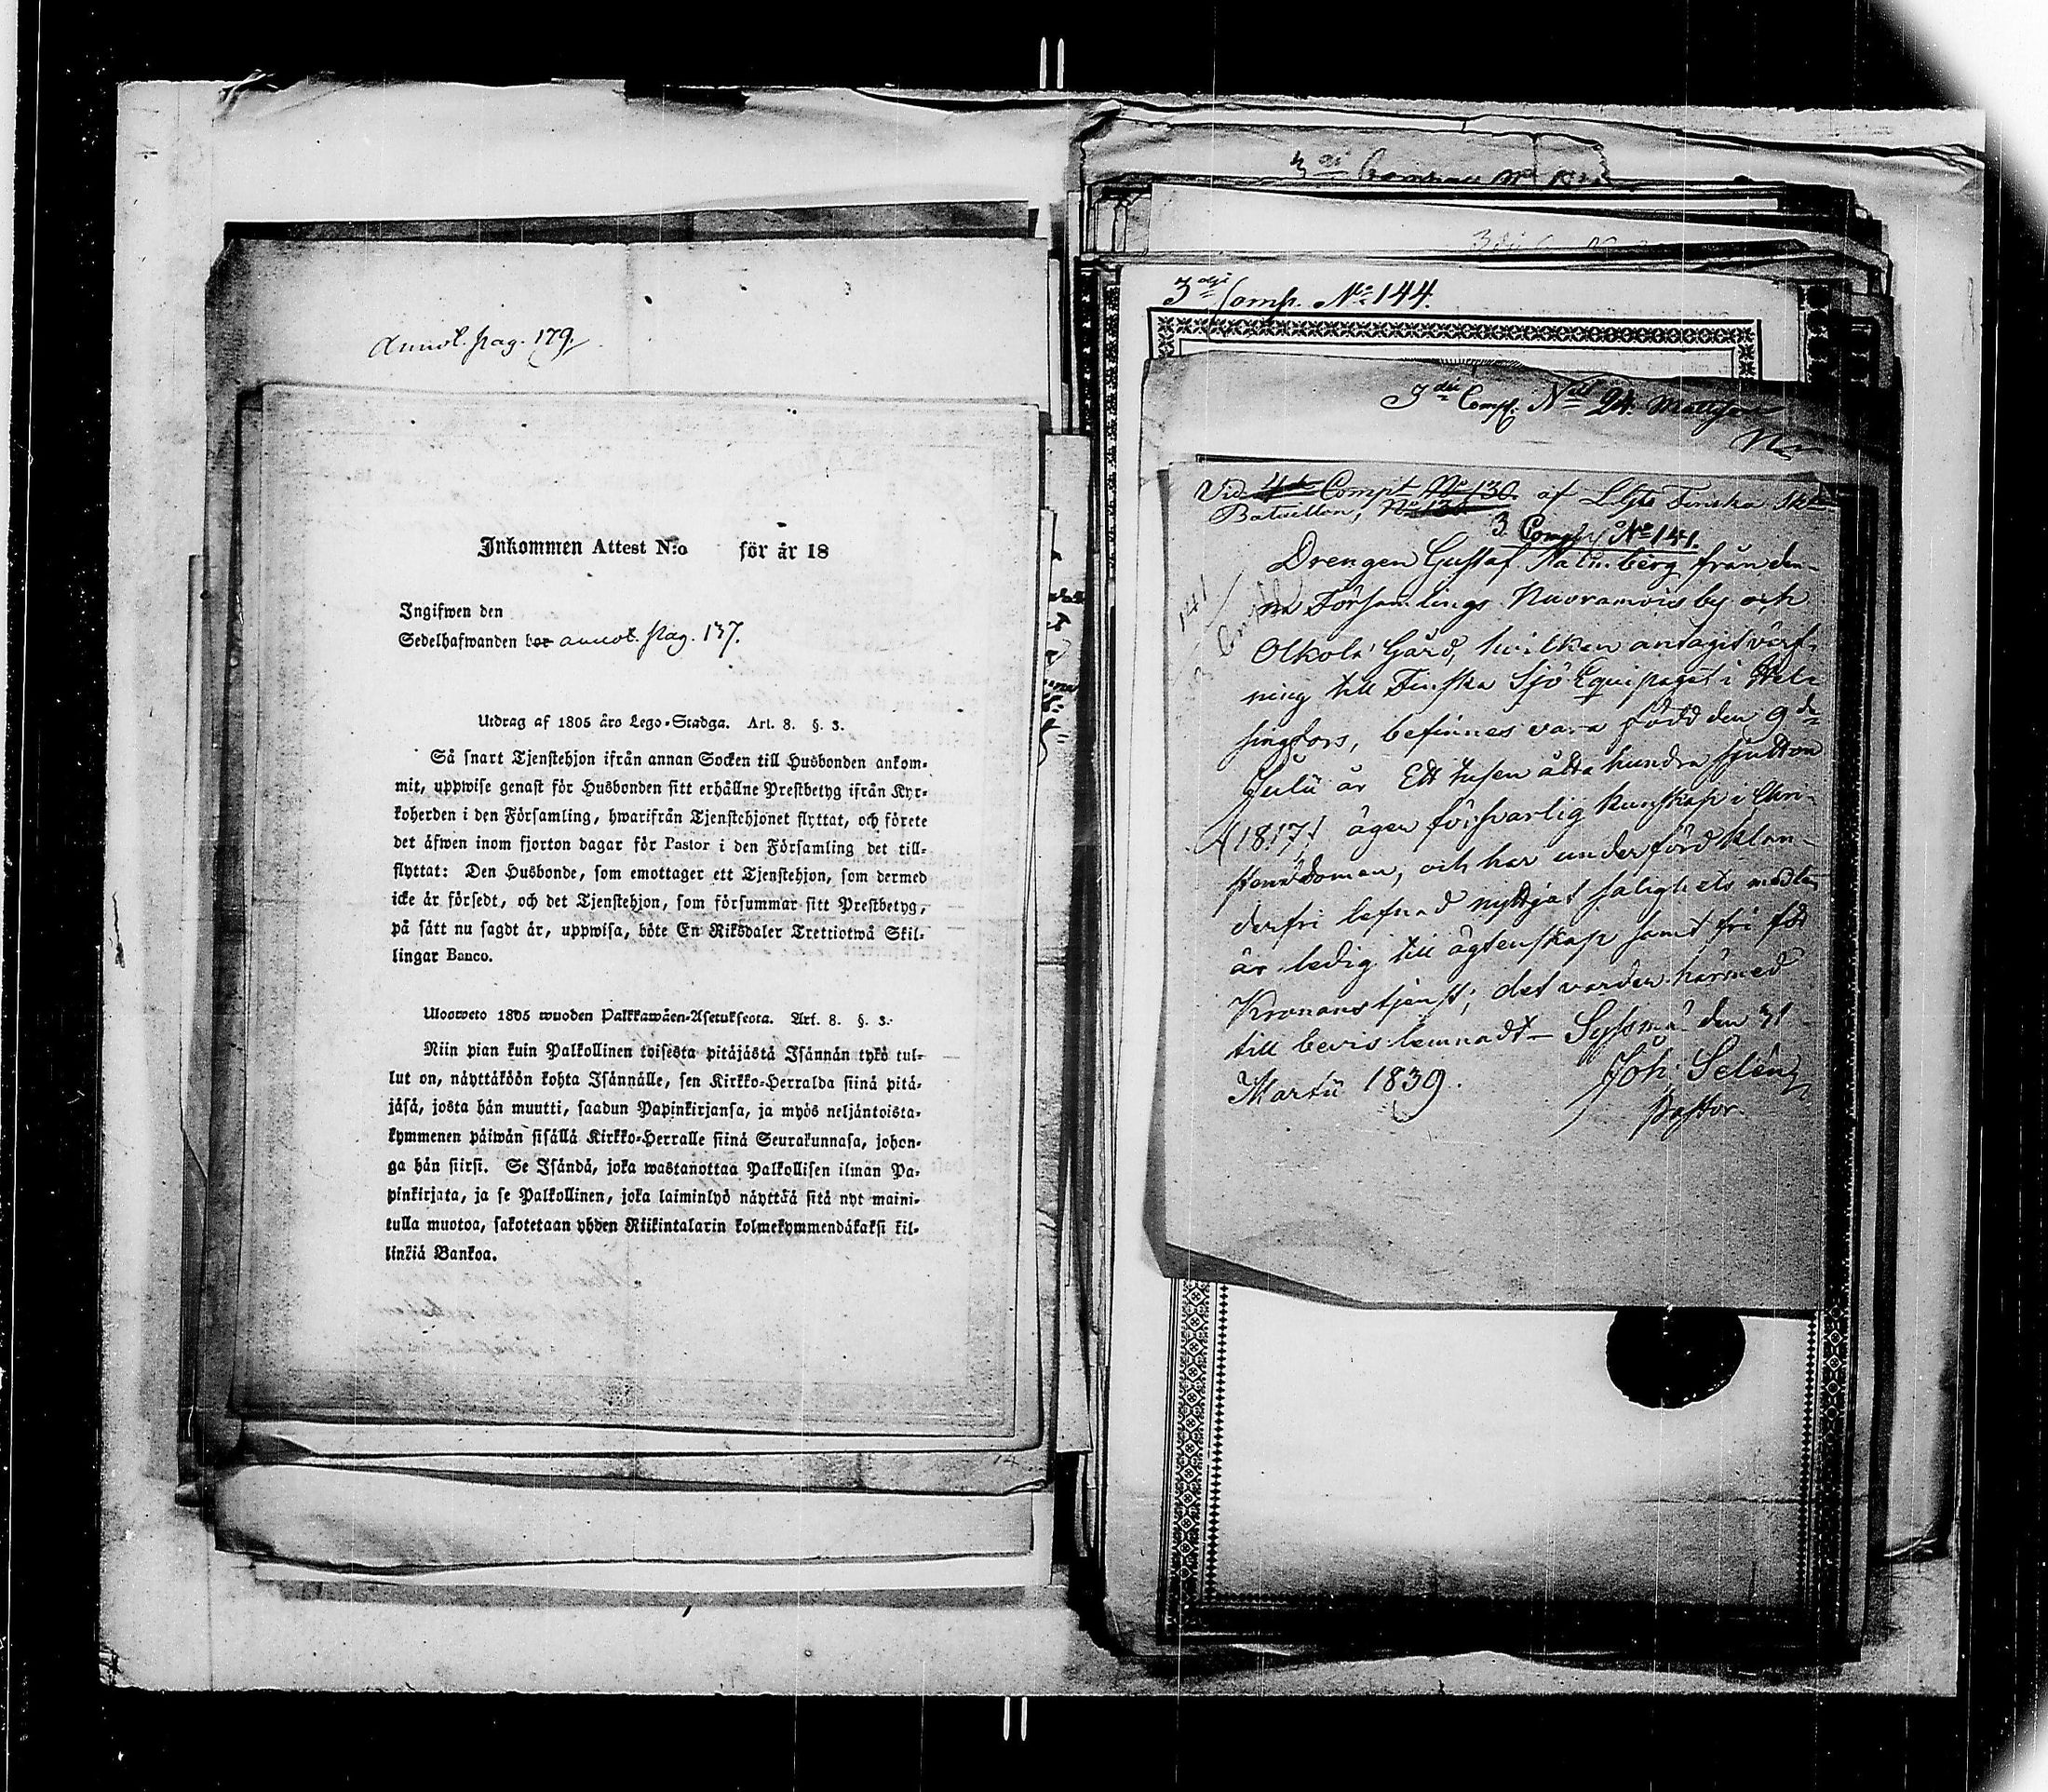 Annot. pag. 179.
Inkommen Attest N:o för år 18
Ingifwen den
Sedelhafwanden bor annot. pag. 137.
Utdrag af 1805 års Lego-Stadga. Art. 8. §. 3.
Så snart Tjenstehjon ifrån annan Socken till Husbonden ankom-
mit, uppwise genast för Husbonden sitt erhållne Prestbetyg ifrån Kyr-
koherden i den Församling, hwarifrån Tjenstehjonet flyttat, och förete
det äfwen inom fjorton dagar för Pastor i den Församling det till-
flyttat: Den Husbonde, som emottager ett Tjenstehjon, som dermed
icke är försedt, och det Tjenstehjon, som försummar sitt Prestbetyg,
på sätt nu sagdt är, uppwisa, böte En Riksdaler Trettiotwå Skil-
lingar Banco.
Ulosweto 1805 wuoden Palkkawäen-Asetuksesta. Art. 8. §. 3.
Niin pian kuin Palkollinen toisesta pitäjästä Isännän tykö tul-
lut on, näyttäköön kohta Isännälle, sen Kirkko-Herralda siinä pitä-
jäsä, josta hän muutti, saadun Papinkirjansa, ja myös neljäntoista-
kymmenen päiwän sisällä Kirkko-Herralle siinä Seurakunnasa, johon-
ga hän siirsi. Se Isändä, joka wastanottaa Palkollisen ilman Pa-
pinkirjata, ja se Palkollinen, joka laiminlyö näyttää sitä nyt maini-
tulla muotoa, sakotetaan yhden Riikintalarin kolmekymmendäkaksi kil-
linkiä Bankoa.
3dje Comp. No 144.
3die Comp. No 24. Mattsson
Vid 4de Compt No 130. af Finska
Bataillon, No 130
3 Comp. No 141.
Drengen Gustaf Malmberg från den-
na Församlings Nuoramois by och
Olkola Gård, hvilken antagit värf-
ning till Finska Sjö Equipaget i Hel-
singfors, befinnes vara född den 9de
Julii år Ett tusen åtta hundra sjutton
(1817) äger försvarlig kunskap i Chri-
stendomen, och har under förd klan-
derfri lefnad nyttjat salighets medlen
är ledig till ägtenskap samt fri för
Kronans tjenst; det varder härmed
till bevis lemnadt – Syssmä den 31
Martii 1839.
Joh. Selén
Pastor